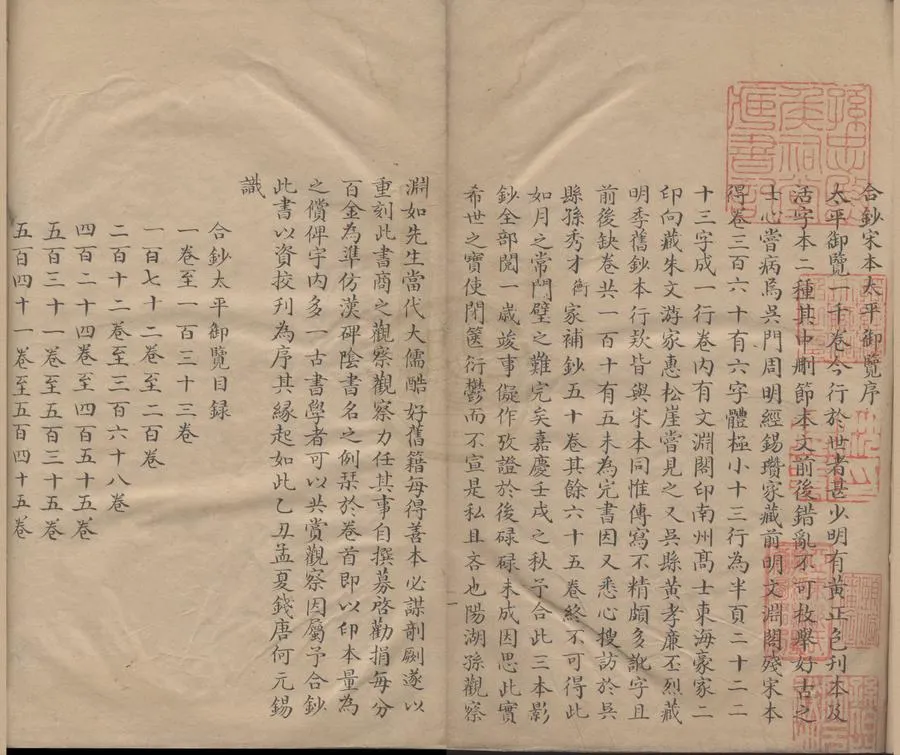 合鈔宋本太平御覽序
太平御覽一千卷今行於世者甚少明有黃正色刊本及
活字本二種其中刪節本文前後錯亂不可枚舉好古之
士心嘗病焉吳門周明經錫瓚家藏前明文淵閣殘宋本
得卷三百六十有六字體極小十三行為半頁二十二
十三字成一行卷內有文淵閣印南州髙士東海豪家二
印向藏朱文游家惠松崖嘗見之又吳縣黃孝廉丕烈藏
明季舊鈔本行欵皆與宋本同惟傳寫不精頗多訛字且
前後缺卷共一百十有五未為完書因又悉心搜訪於吳
縣孫秀才衡家補鈔五十卷其餘六十五卷終不可得此
如月之常門璧之難完矣嘉慶壬戌之秋予合此三本影
鈔全部閱一歲竣事儗作攷證於後碌碌未成因思此實
希世之寶使閉篋衍鬱而不宣是私且吝也陽湖孫觀察
淵如先生當代大儒酷好舊籍每得善本必謀剞劂遂以
重刻此書商之觀察觀察力任其事自撰募啓勸捐每分
百金為準仿漢碑陰書名之例栞於卷首即以印本量為
之償俾宇内多一古書學者可以共賞觀察因屬予合鈔
此書以資挍刊為序其緣起如此乙丑孟夏錢唐何元錫
識
合鈔太平御覽目録
一卷至一百三十三卷
一百七十二卷至二百卷
二百十二卷至三百六十八卷
四百二十四卷至四百五十五卷
五百三十一卷至五百三十五卷
五百四十一卷至五百四十五卷